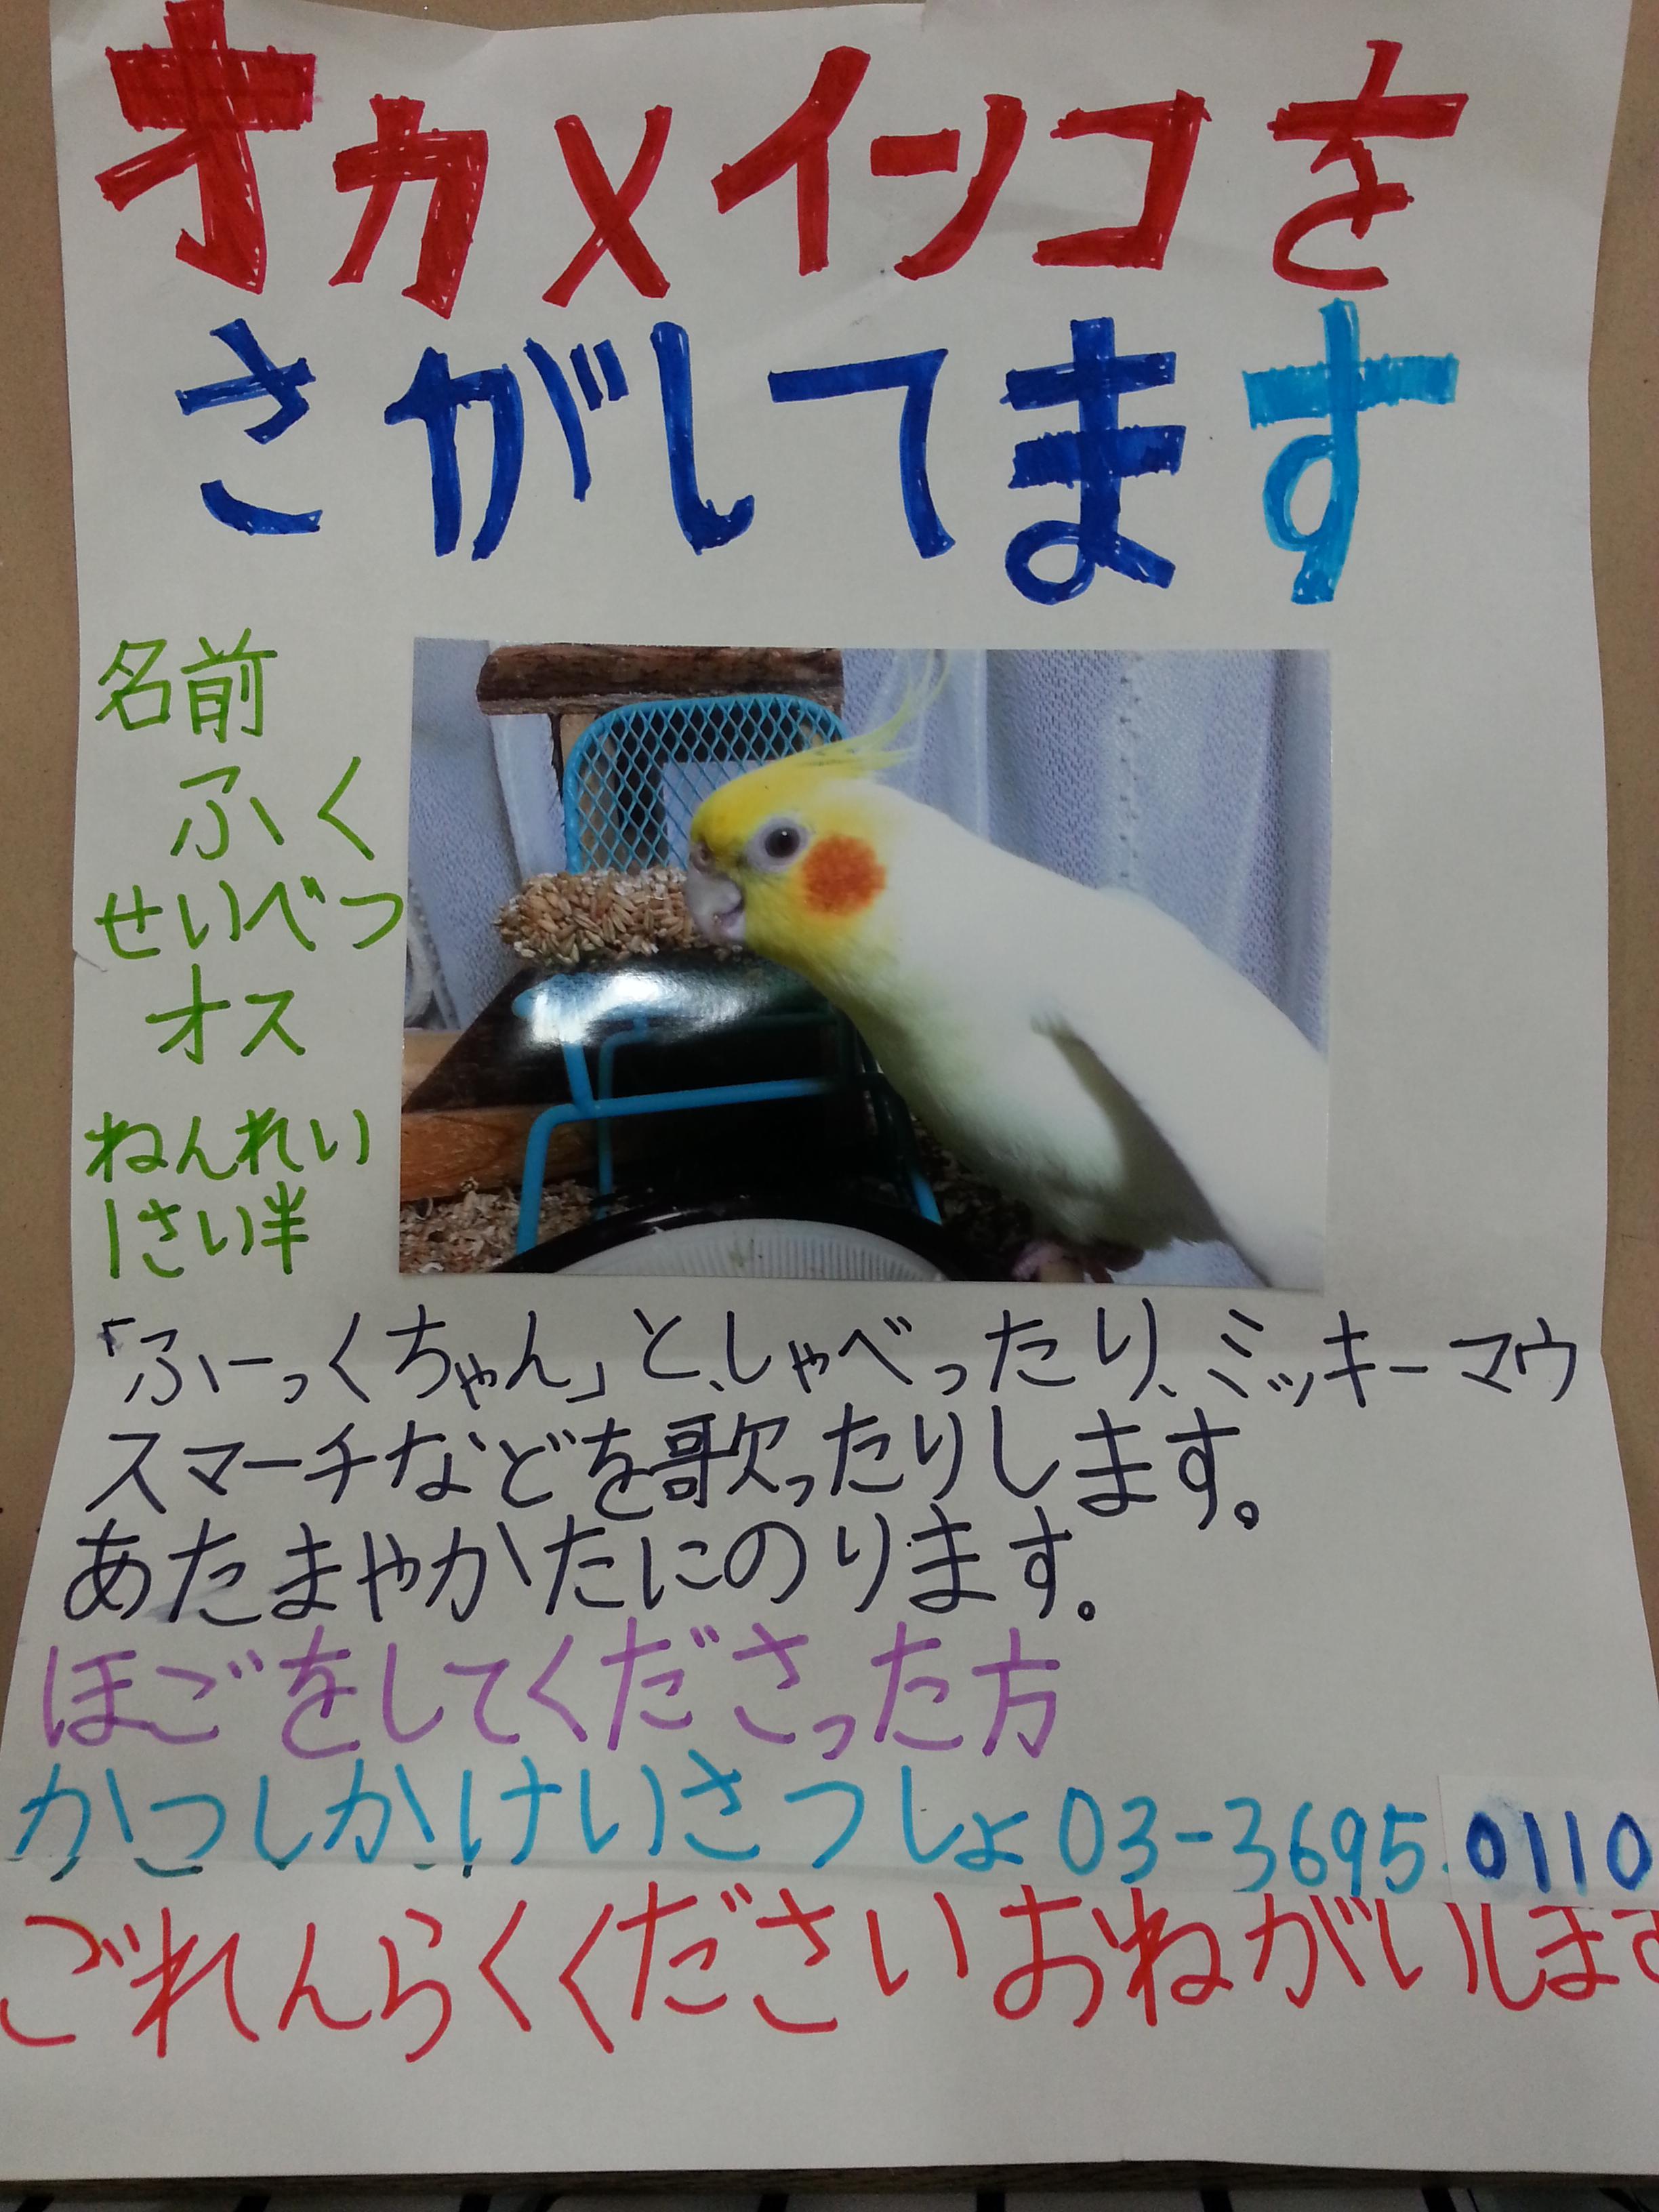 オカメインコを
さがしてます
名前
ふく
せいべつ
オス
ねんれい
1さい半
「ふーっくちゃん」と、しゃべったり、ミッキーマウ
スマーチなどを歌ったりします。
あたまやかたにのります。
ほごをしてくださった方
かつしかけいさつしょ03-3695.0110
ごれんらくくださいおねがいします